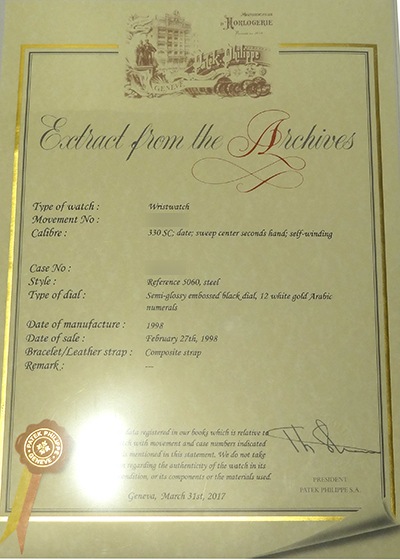 HORLOGERIE
Patek, Philippe
GENÈVE
Extract from the Archives
Type of watch : Wristwatch
Movement No :
Calibre : 330 SC; date; sweep center seconds hand; self-winding
Case No :
Style : Reference 5060, steel
Type of dial : Semi-glossy embossed black dial, 12 white gold Arabic
numerals
Date of manufacture : 1998
Date of sale : February 27th, 1998
Bracelet/Leather strap : Composite strap
Remark : ---
registered in our books which is relative to
with movement and case numbers indicated
mentioned in this statement. We do not take
regarding the authenticity of the watch in its
condition, or its components or the materials used.
Geneva, March 31st, 2017
PRESIDENT
PATEK PHILIPPE S.A.
PATEK PHILIPPE
GENEVE